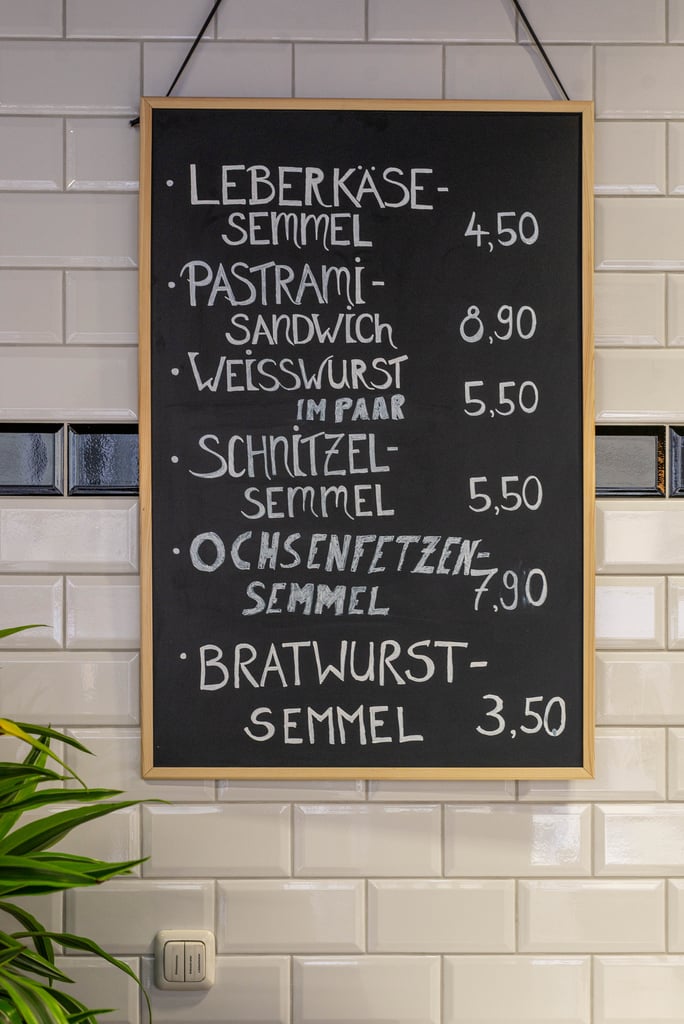 · LEBERKÄSE-
SEMMEL 4,50
· PASTRAMI-
SANDWICH 8,90
· WEISSWURST
IM PAAR 5,50
· SCHNITZEL-
SEMMEL 5,50
· OCHSENFETZEN-
SEMMEL 7,90
· BRATWURST-
SEMMEL 3,50